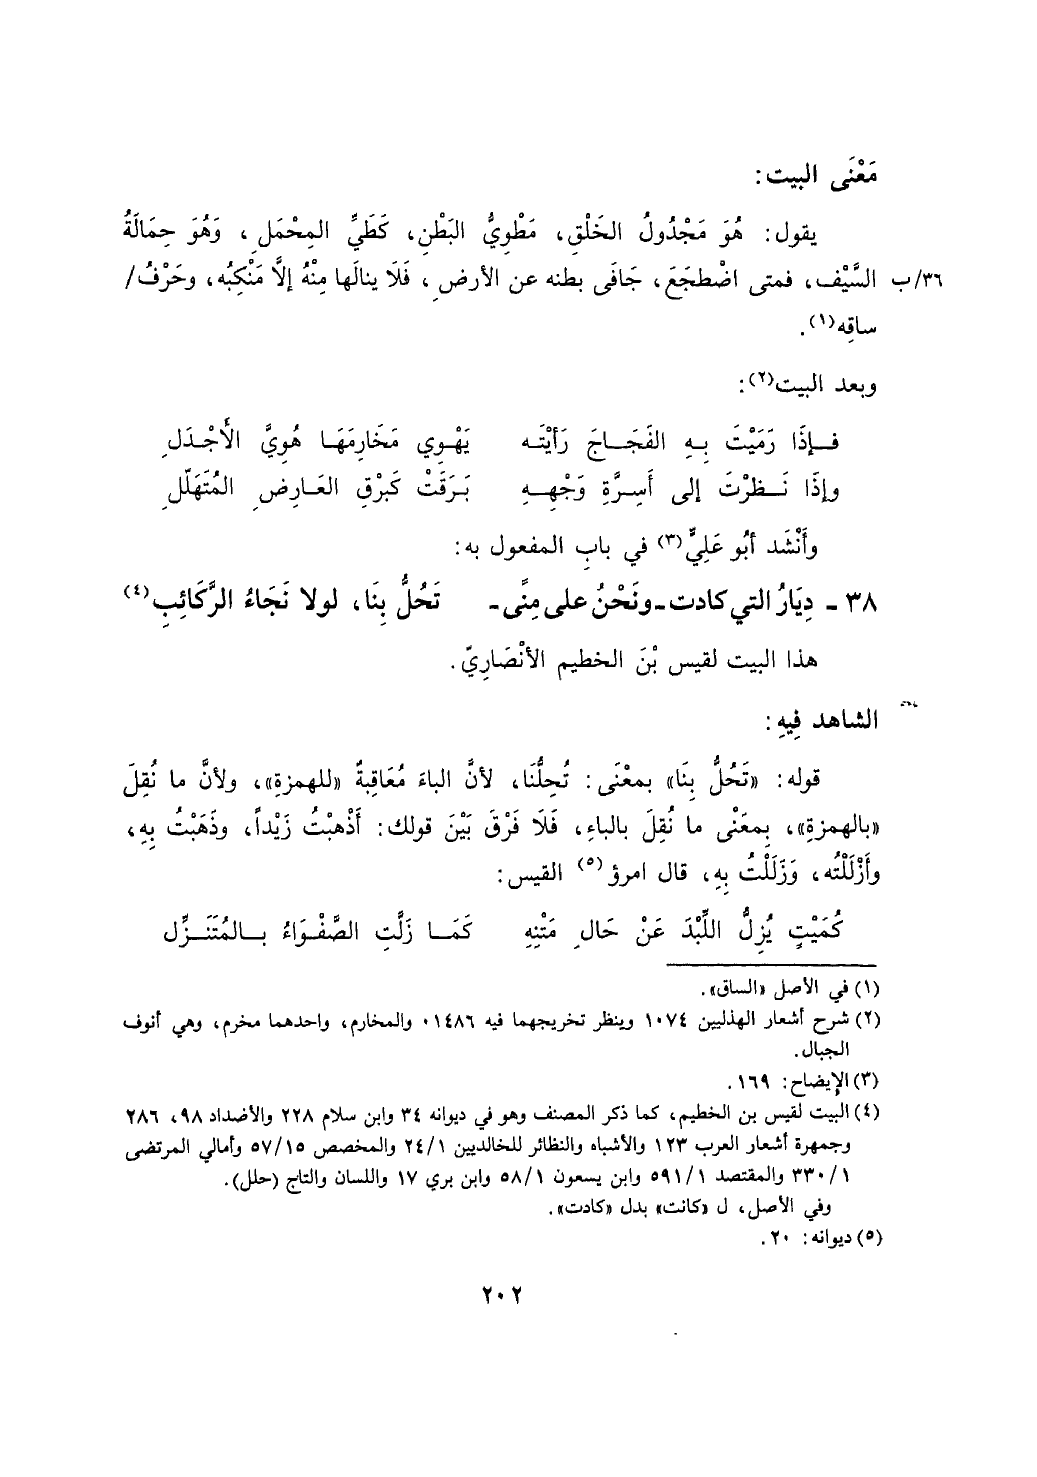 مَعْنَى البيت:
يقول: هُوَ مَجْدُولُ الخَلْقِ، مَطْوِيُّ البَطْنِ، كَطَيِّ المِحْمَلِ، وَهُوَ حِمَالَةُ
٣٦/ب السَّيْف، فمتى اضْطجَعَ، جَافَى بطنه عن الأرضِ، فَلَا ينالَها مِنْهُ إلاَّ مَنْكِبُه، وحَرْفُ/
ساقِه(١).
وبعد البيت(٢):
فـإذَا رَمَيْتَ بِـهِ الفَجَـاجَ رَأيْتَـه يَهْـوِي مَخَارِمَهَـا هُوِيَّ الأَجْـدَلِ
وإذَا نَـظرْتَ إلى أَسِـرَّةِ وَجْهِـهِ بَـرَقَتْ كَبَرْقِ العَـارِضِ المُتَهَلّلِ
وأَنْشَد أبُو عَلِيٍّ(٣) في بابِ المفعول به:
٣٨ - دِيَارُ التي كادت - ونَحْنُ على مِنًى - تَحُلُّ بِنَا، لولا نَجَاءُ الرَّكَائِبِ(٤)
هذا البيت لقيس بْنَ الخطيم الأنْصَارِيّ.
الشاهد فِيهِ:
قوله: «تَحُلُّ بِنَا» بمعْنَى: تُحِلُّنَا، لأنَّ الباءَ مُعَاقِبةٌ «للهمزة»، ولأنَّ ما نُقِلَ
«بالهمزةِ»، بِمعَنْى ما نُقِلَ بالباءِ، فَلَا فَرْقَ بَيْنَ قولك: أَذْهبْتُ زَيْداً، وذَهَبْتُ بِهِ،
وأَزْلَلْتُه، وَزَلَلْتُ بِهِ، قال امرؤ(٥) القيس:
كُمَيْتٍ يُزِلُّ اللِّبْدَ عَنْ حَالِ مَتْنِهِ كَمَـا زَلَّتِ الصَّفْـوَاءُ بـالمُتَنَـزِّلِ
(١) في الأصل «الساق».
(٢) شرح أشعار الهذليين ١٠٧٤ وينظر تخريجهما فيه ١٤٨٦. والمخارم، واحدهما مخرم، وهي أنوف
الجبال.
(٣) الإيضاح: ١٦٩.
(٤) البيت لقيس بن الخطيم، كما ذكر المصنف وهو في ديوانه ٣٤ وابن سلام ٢٢٨ والأضداد ٩٨، ٢٨٦
وجمهرة أشعار العرب ١٢٣ والأشباه والنظائر للخالديين ٢٤/١ والمخصص ٥٧/١٥ وأمالي المرتضى
٣٣٠/١ والمقتصد ٥٩١/١ وابن يسعون ٥٨/١ وابن بري ١٧ واللسان والتاج (حلل).
وفي الأصل، ل «كانت» بدل «كادت».
(٥) ديوانه: ٢٠.
٢٠٢